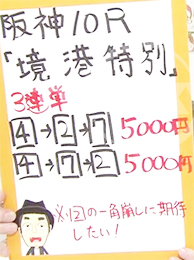 阪神10R
「境港特別」
3連単
4→2→7 5000円
4→7→2 5000円
の一角崩しに期待
したい！